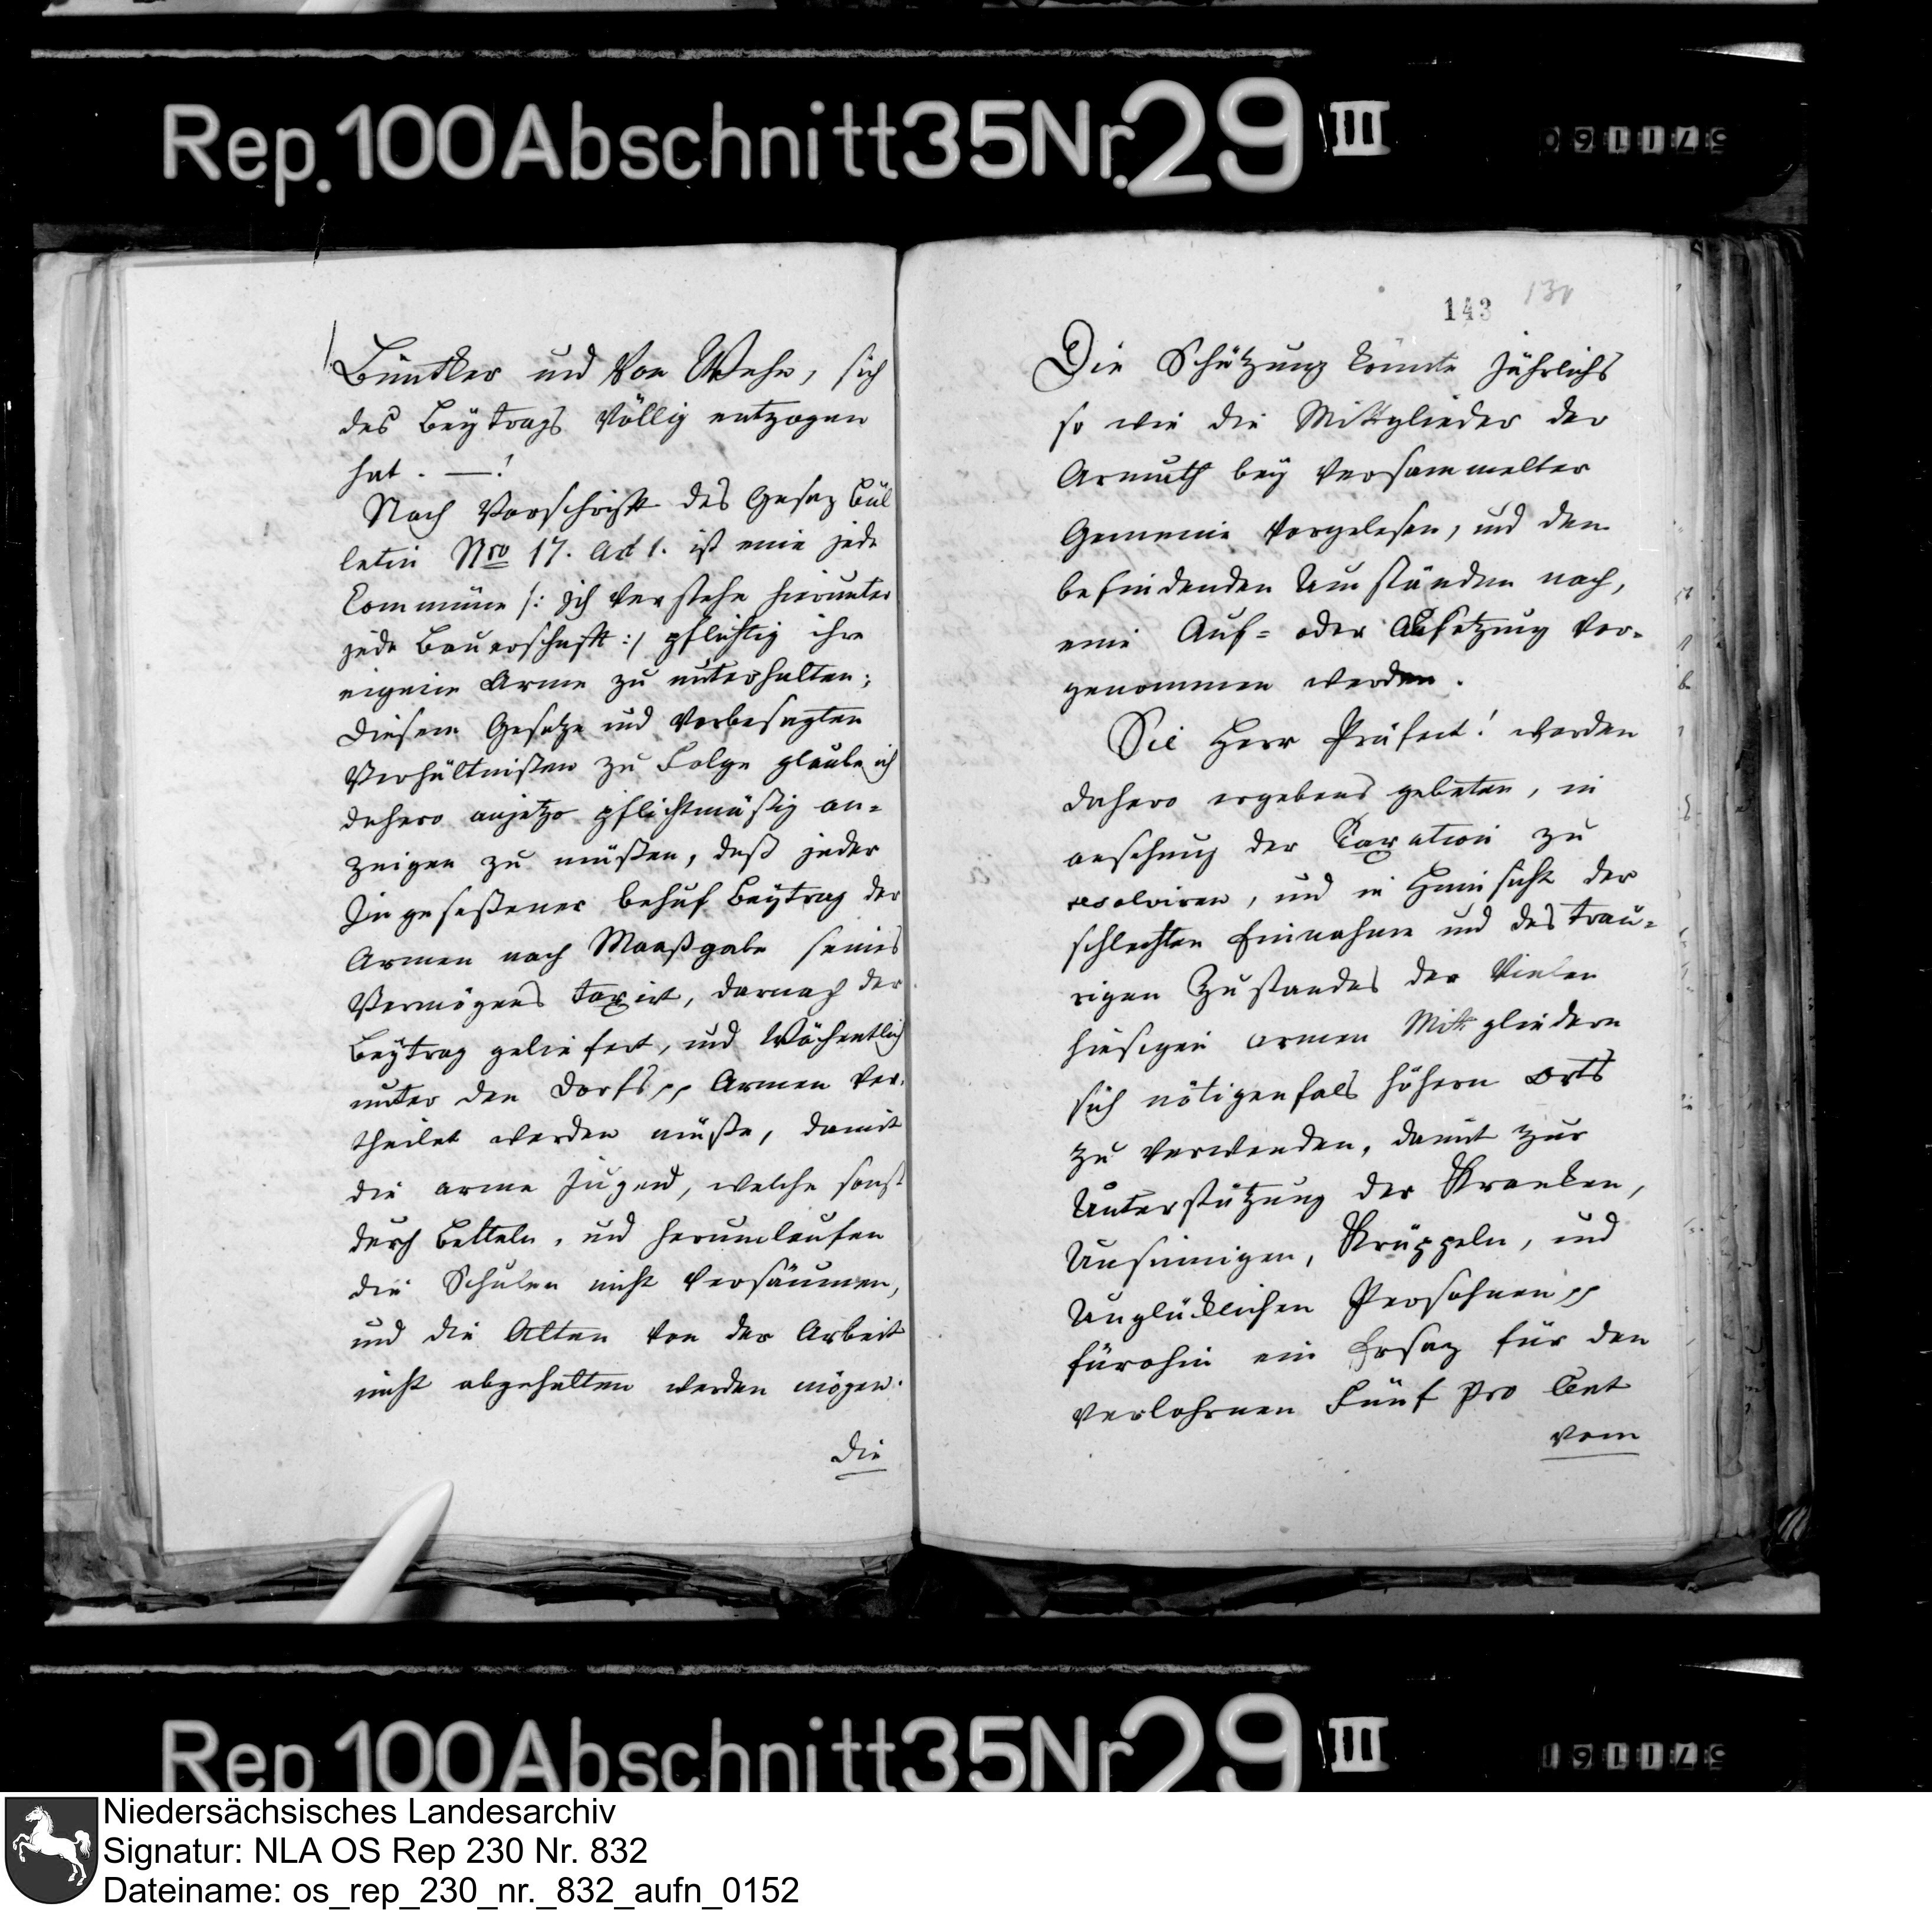 Rep. 100 Abschnitt 35 Nr. 29 III
143
Büncker und von Wehe, sich
des Beÿtrags völlig entzogen
hat. —!
Nach Vorschrift des Gesez bül
letin Nro 17. Art 1. ist eine jede
Commüne /: ich verstehe hierunter
jede Bauerschaft :/ pflichtig ihre
eigene Arme zu unterhalten;
diesem Gesetze und vorbesagten
Verhältnißen zu Folge glaube ich
dahero anjetzo pflichtmäßig an-
zeigen zu müßen, daß jeder
Eingeseßener behuf Beÿtrag der
Armen nach Maaßgabe seines
Vermögens taxirt, darnach der
Beÿtrag geliefert, und Wöchentlich
unter den Dorfs Armen ver-
theilet werden müße, damit
die arme Jugend, welche sonst
durch betteln, und herumlaufen
die Schulen nicht versäumen,
und die Alten von der Arbeit
nicht abgehalten werden mögen.
Die
Die Schätzung könnte jährlichs
so wie die Mittglieder der
Armuth beÿ versammelter
Gemeine vorgelesen, und den
befindenden Umständen nach,
eine Auf- oder Absetzung vor-
genommen werden.
Sie Herr Präfect! werden
dahero ergebens gebeten, in
ansehung der Taxation zu
resolviren, und in Hinnsicht der
schlechten Einnahme und des trau-
rigen Zustandes der vielen
hiesigen armen Mittgliedern
sich nötigenfals höhern Orts
zu verwenden, damit zur
Unterstützung der Kranken,
Unsinnigen, Krüppeln, und
Unglücklichen Persohnen
fürohin ein Ersaz für den
verlohrnen Fünf pro Cent
vom
Rep 100 Abschnitt 35 Nr 29 III
Niedersächsisches Landesarchiv
Signatur: NLA OS Rep 230 Nr. 832
Dateiname: os_rep_230_nr._832_aufn_0152